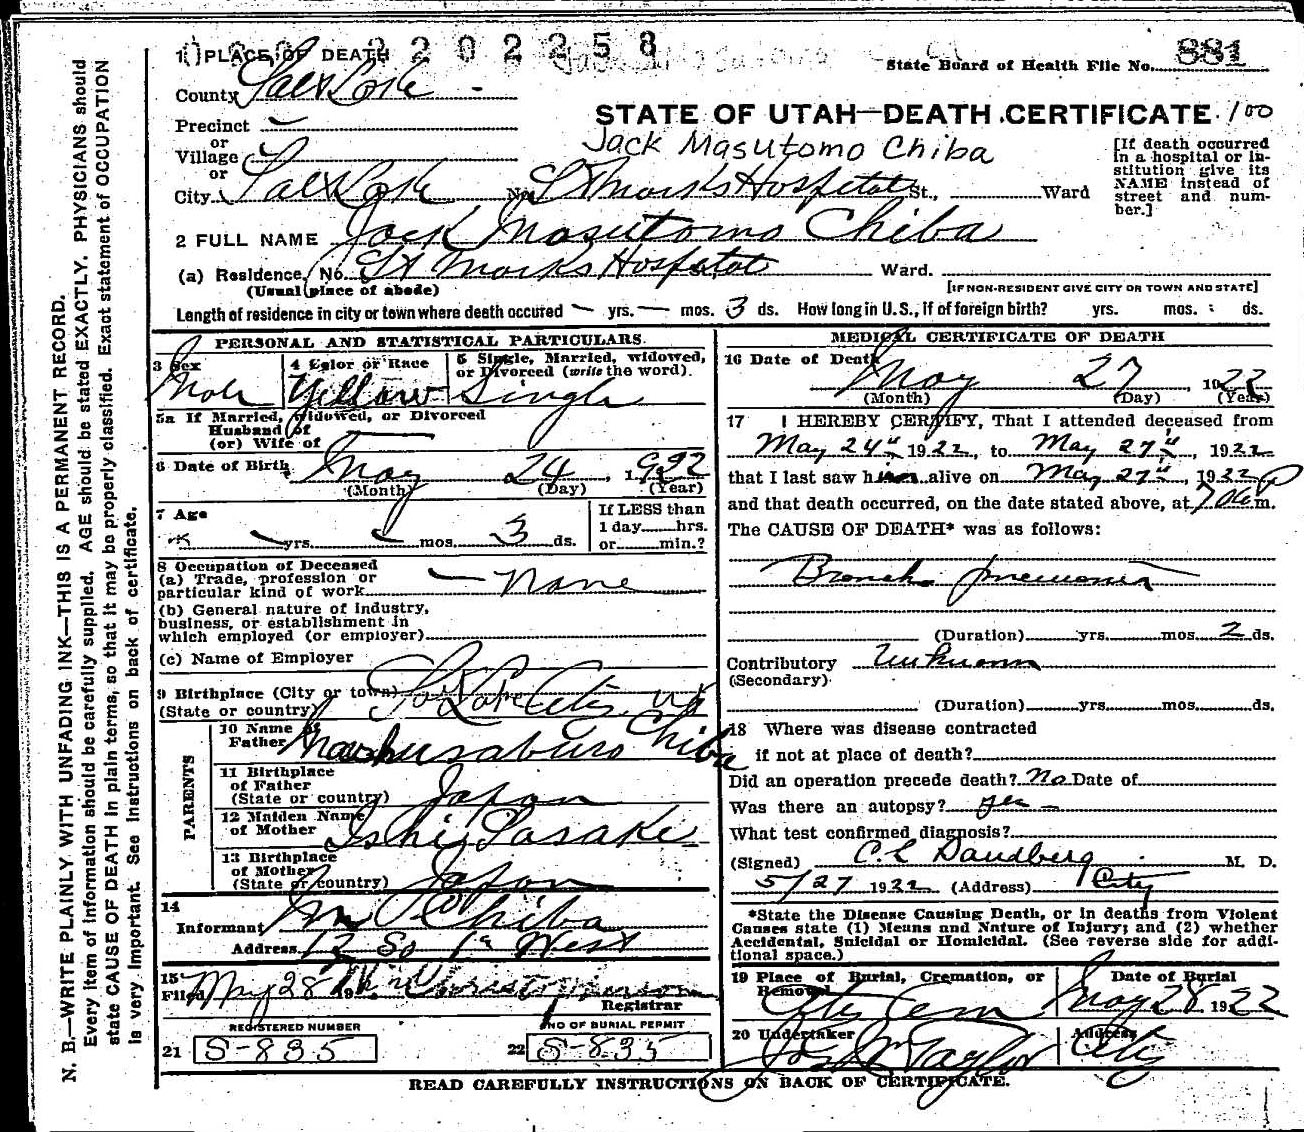 2202258
1 PLACE OF DEATH
State Board of Health File No. 881
County Salt Lake
STATE OF UTAH—DEATH CERTIFICATE. 100
Precinct
or
Village
or
Jack Masutomo Chiba
[If death occurred in a hospital or institution give its NAME instead of street and number.]
City Salt Lake No. St Marks Hospital St., Ward
2 FULL NAME Jack Masutomo Chiba
(a) Residence, No. St Marks Hospital Ward.
(Usual place of abode) [IF NON-RESIDENT GIVE CITY OR TOWN AND STATE]
Length of residence in city or town where death occured — yrs. — mos. 3 ds. How long in U.S., if of foreign birth? yrs. mos. ds.
PERSONAL AND STATISTICAL PARTICULARS.
3 Sex Male
4 Color or Race Yellow
5 Single, Married, widowed, or Divorced (write the word). Single
5a If Married, widowed, or Divorced
Husband of
(or) Wife of
6 Date of Birth May 24, 1922
(Month) (Day) (Year)
7 Age
yrs. mos. 3 ds.
If LESS than
1 day hrs.
or min.?
8 Occupation of Deceased
(a) Trade, profession or
particular kind of work None
(b) General nature of industry,
business, or establishment in
which employed (or employer)
(c) Name of Employer
9 Birthplace (City or town) Salt Lake City, Ut
(State or country)
PARENTS
10 Name of
Father Chiba
11 Birthplace
of Father
(State or country) Japan
12 Maiden Name
of Mother Ishi Sasaki
13 Birthplace
of Mother
(State or country) Japan
14
Informant Chiba
Address 12 So 1st West
15
Filed May 28 19 Registrar
REGISTERED NUMBER
21 S-835
NO OF BURIAL PERMIT
22 S-835
MEDICAL CERTIFICATE OF DEATH
16 Date of Death May 27, 1922
(Month) (Day) (Year)
17 I HEREBY CERTIFY, That I attended deceased from
May 24", 1922, to May 27", 1922
that I last saw him alive on May 27", 1922
and that death occurred, on the date stated above, at m.
The CAUSE OF DEATH* was as follows:
Broncho pneumonia
(Duration) yrs. mos. 2 ds.
Contributory Unknown
(Secondary)
(Duration) yrs. mos. ds.
18 Where was disease contracted
if not at place of death?
Did an operation precede death? No Date of
Was there an autopsy? yes
What test confirmed diagnosis?
(Signed) C.L Sandberg M. D.
5/27 1922 (Address) City
*State the Disease Causing Death, or in deaths from Violent
Causes state (1) Means and Nature of Injury; and (2) whether
Accidental, Suicidal or Homicidal. (See reverse side for addi-
tional space.)
19 Place of Burial, Cremation, or
Removal City Cem
Date of Burial
May 28 1922
20 Undertaker Taylor
Address City
READ CAREFULLY INSTRUCTIONS ON BACK OF CERTIFICATE.
N. B.—WRITE PLAINLY WITH UNFADING INK—THIS IS A PERMANENT RECORD.
Every item of information should be carefully supplied. AGE should be stated EXACTLY. PHYSICIANS should
state CAUSE OF DEATH in plain terms, so that it may be properly classified. Exact statement of OCCUPATION
is very important. See instructions on back of certificate.